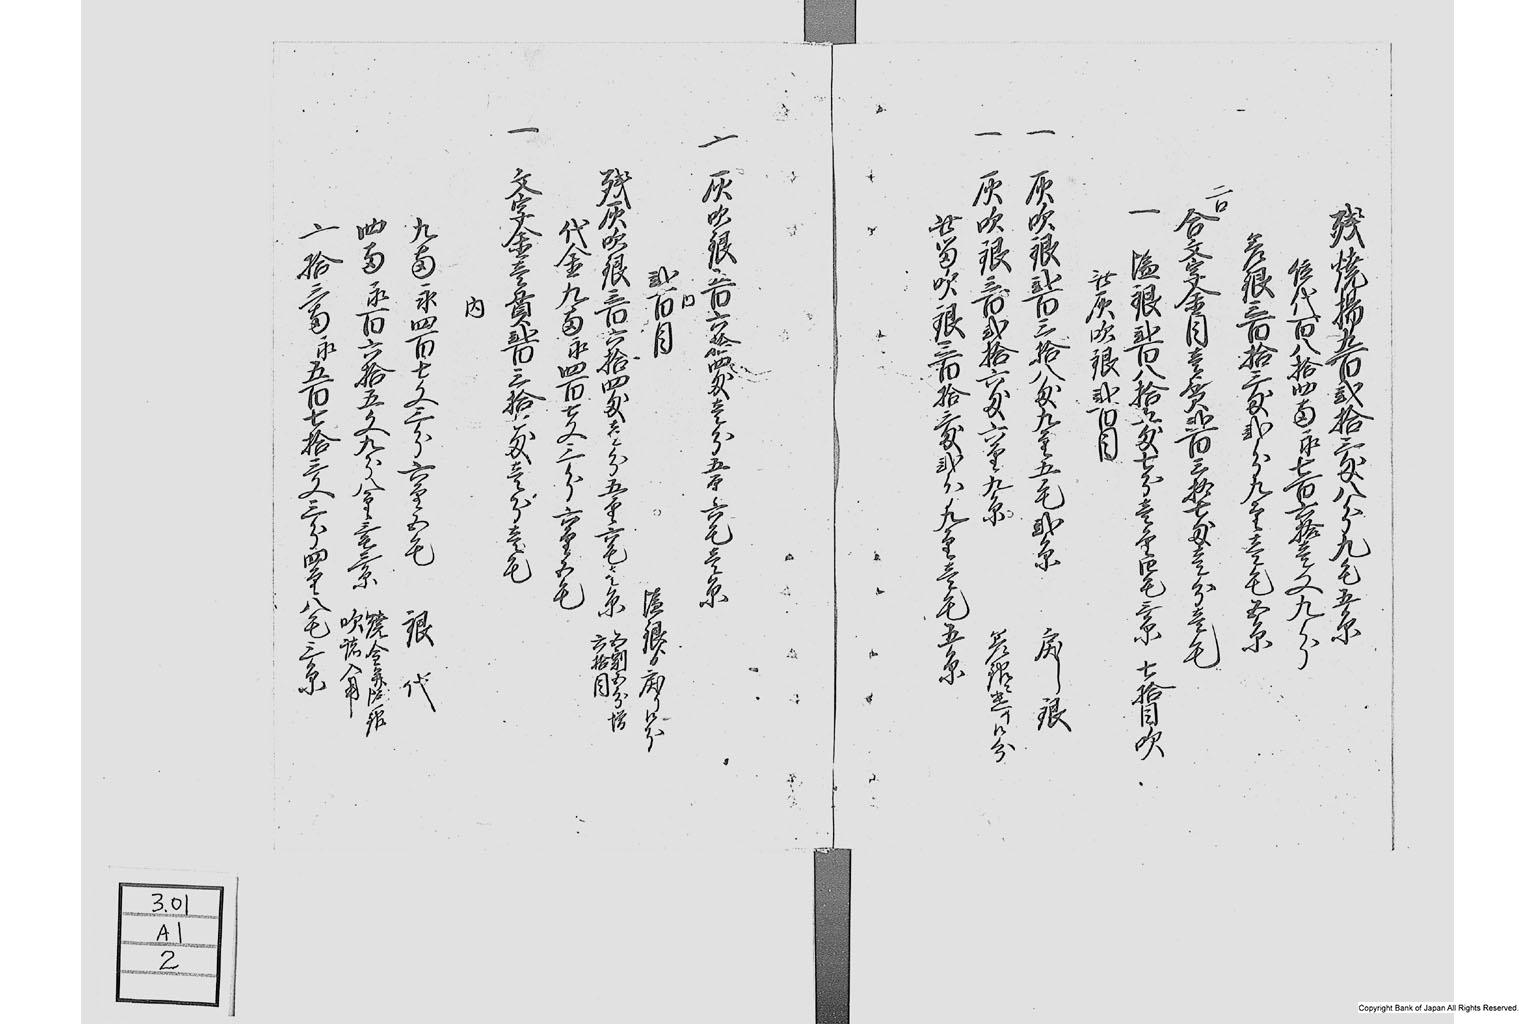 残焼揚九百弐拾三匁八分九毛五糸
位代百八拾四両永七百六拾壱文九分
差銀三百拾三匁弐分九厘壱毛五糸
二口
合文字金目壱貫弐百三拾七匁壱分壱毛
一 塩銀弐百八拾六匁七分壱厘四毛三糸 七拾目吹
此灰吹銀弐百目
一 灰吹銀弐百三拾八匁九厘五毛弐糸 銀
一 灰吹銀三百弐拾六匁六厘九糸
此留吹銀三百拾三匁弐分九厘壱毛五糸
〆 灰吹銀五百六拾四匁壱分五厘六毛壱糸
内
弐百目 塩銀
残灰吹銀三百六拾四匁壱分五厘六毛壱糸 五割五分増
六拾目
代金九両永四百七文三分六厘五毛
一 文字金壱貫弐百三拾七匁壱分壱毛
内
九両永四百七文三分六厘五毛 銀代
四両永百六拾五文九分八厘三毛三糸 焼金并塩銀
吹諸入用
〆拾三両永五百七拾三文三分四厘八毛三糸
3.01
A1
2
Copyright Bank of Japan All Rights Reserved.